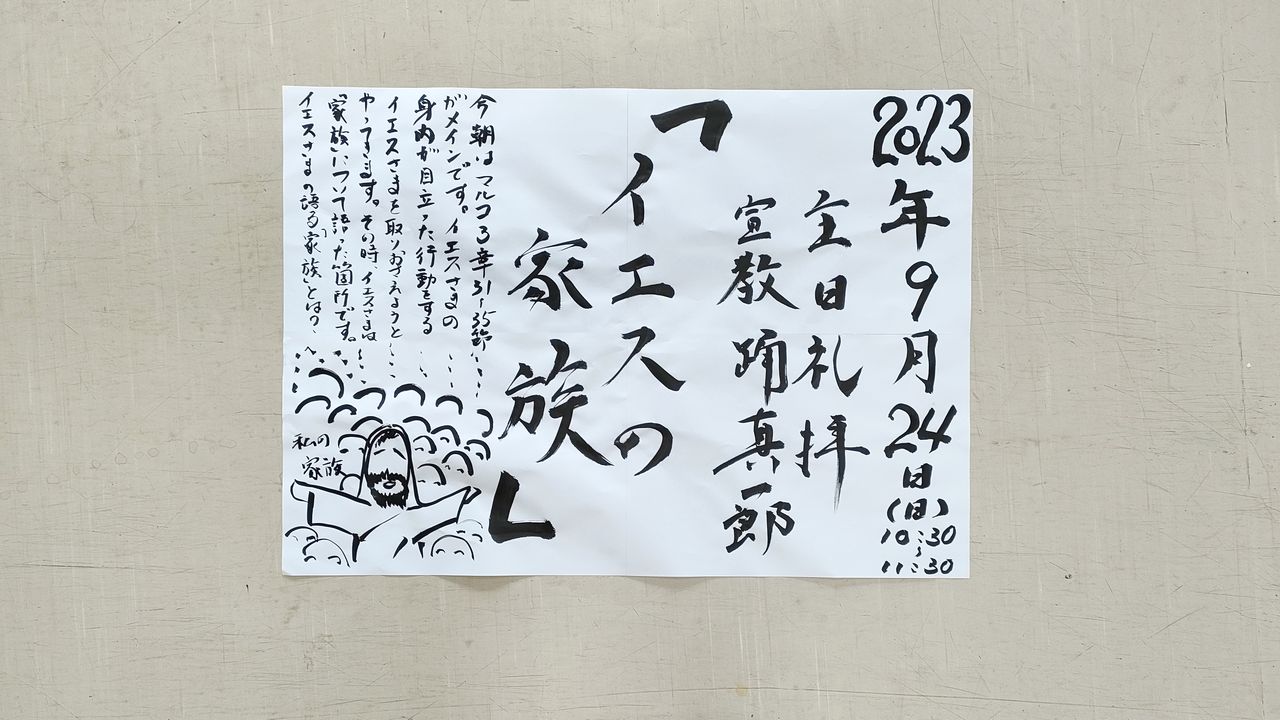 2023年9月24日(日)10:30~11:30
主日礼拝
宣教 踊真一郎
「イエスの
家族」
今朝はマルコ3章31-35節
がメインです。イエスさまの
身内が目立った行動をする
イエスさまを取りおさえようと
やってきます。その時イエスさまは
「家族」について語った箇所です。
イエスさまの語る「家族」とは?
私の
家族